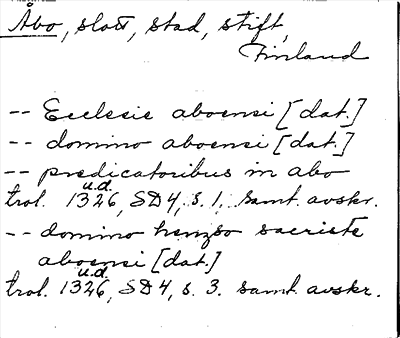 Åbo, slott, stad, stift,
Finland
-- Ecclesie aboensi [dat.]
-- domino aboensi [dat.]
-- predicatoribus in abo
trol. 1326, u.d. SD4, s. 1. samt. avskr.
-- domino henzso sacriste
aboensi [dat.]
trol. 1326, u.d. SD4, s. 3. samt. avskr.